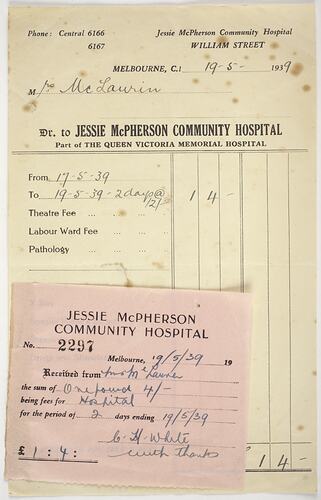 Phone: Central 6166
6167
Jessie McPherson Community Hospital
WILLIAM STREET
MELBOURNE, C.1 19-5-1939
Mrs McLaurin
Dr. to JESSIE McPHERSON COMMUNITY HOSPITAL
Part of THE QUEEN VICTORIA MEMORIAL HOSPITAL
From 17-5-39
To 19-5-39 - 2 days @ 12/- 1 4 -
Theatre Fee ... ...
Labour Ward Fee ...
Pathology ... ...
JESSIE McPHERSON
COMMUNITY HOSPITAL
No. 2297
Melbourne, 19/5/39 19
Received from Mrs
the sum of One pound 4/-
being fees for Hospital
for the period of 2 days ending 19/5/39
White
£ 1 : 4 : with thanks
1 4 -